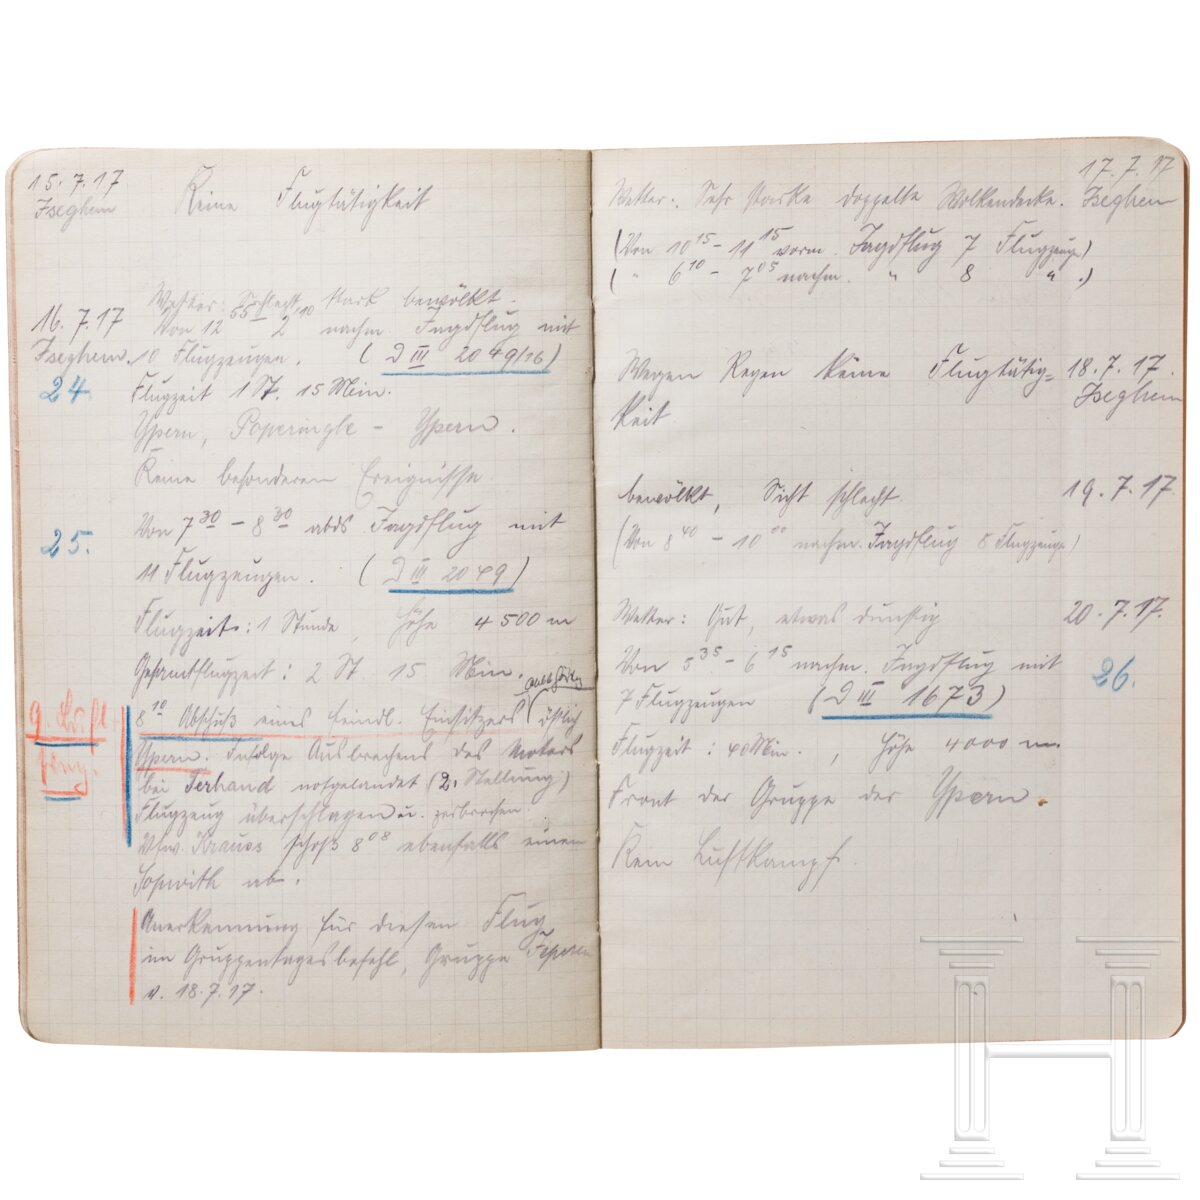 15.7.17
Iseghem
Keine Flugtätigkeit
Wetter: Schlecht, stark bewölkt.
16.7.17
Von 12⁵⁵ – 2¹⁰ nachm. Jagdflug mit
Iseghem. 10 Flugzeugen. (D III 2049/16)
24.
Flugzeit 1 St. 15 Min.
Ypern, Poperinghe – Ypern.
Keine besonderen Ereignisse.
25.
Von 7³⁰ – 8³⁰ abds Jagdflug mit
11 Flugzeugen. (D III 2049)
Flugzeit: 1 Stunde, Höhe 4500 m
Gesamtflugzeit: 2 St. 15 Min.
8¹⁰ Abschuß eines feindl. Einsitzers (östlich
Ypern. Infolge Aussbrechens des Motors
bei Terhand notgelandet (2. Stellung)
Flugzeug überschlagen u. zerbrochen.
Vfw. Krauss schoß 8⁰⁸ ebenfalls einen
Sopwith ab.
Anerkennung für diesen Flug
im Gruppentagesbefehl, Gruppe Ypern
v. 18.7.17.
17.7.17
Wetter: Sehr starke doppelte Wolkendecke. Iseghem
(Von 10¹⁵ – 11¹⁵ vorm. Jagdflug 7 Flugzeuge)
( " 6¹⁰ – 7⁰⁵ nachm. " 8 " .)
Wegen Regen keine Flugtätig= 18.7.17.
keit
Iseghem
bewölkt, Sicht schlecht. 19.7.17
(Von 8⁴⁰ – 10⁰⁰ nachm. Jagdflug 8 Flugzeuge)
Wetter: Gut, etwas dunstig 20.7.17.
Von 5³⁵ – 6¹⁵ nachm. Jagdflug mit
26.
7 Flugzeugen (D III 1673)
Flugzeit: 40 Min., Höhe 4000 m.
Front der Gruppe der Ypern.
Kein Luftkampf.